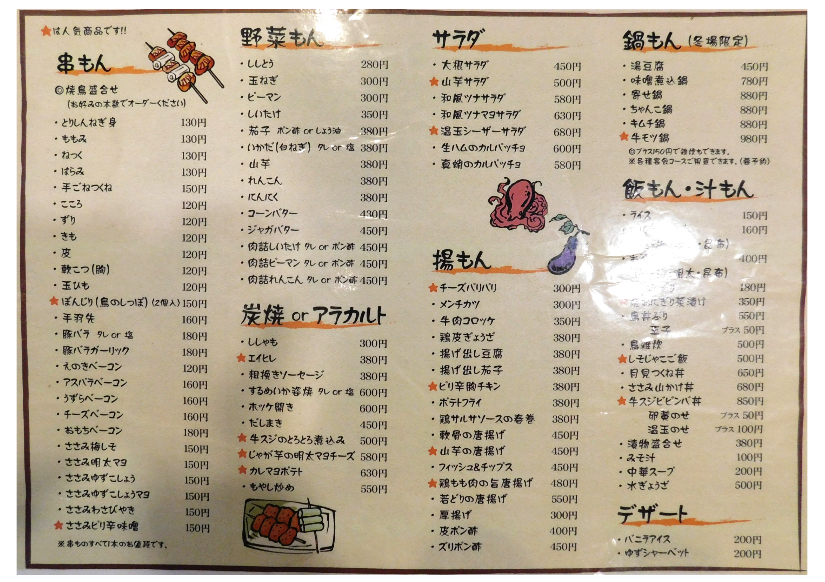 ★は人気商品です!!
串もん
◎焼鳥盛合せ
(お好みの本数でオーダーください)
・とりしんねぎ身 130円
・ももみ 130円
・ねっく 130円
・はらみ 130円
・手ごねつくね 150円
・こころ 120円
・ずり 120円
・きも 120円
・皮 120円
・軟こつ(胸) 120円
・玉ひも 120円
★ぼんじり(鳥のしっぽ)(2個入) 150円
・手羽先 160円
・豚バラ タレ or 塩 180円
・豚バラガーリック 180円
・えのきベーコン 120円
・アスパラベーコン 160円
・うずらベーコン 160円
・チーズベーコン 160円
・おもちベーコン 180円
・ささみ梅しそ 150円
・ささみ明太マヨ 150円
・ささみゆずこしょう 150円
・ささみゆずこしょうマヨ 150円
・ささみわさびやき 150円
★ささみピリ辛味噌 150円
※串ものすべて1本のお値段です。
野菜もん
・ししとう 280円
・玉ねぎ 300円
・ピーマン 300円
・しいたけ 350円
・茄子 ポン酢 or しょう油 380円
・いかだ(白ねぎ) タレ or 塩 380円
・山芋 380円
・れんこん 380円
・にんにく 380円
・コーンバター 430円
・ジャガバター 450円
・肉詰しいたけ タレ or ポン酢 450円
・肉詰ピーマン タレ or ポン酢 450円
・肉詰れんこん タレ or ポン酢 450円
炭焼 or アラカルト
・ししゃも 300円
★エイヒレ 380円
・粗挽きソーセージ 380円
・するめいか姿焼 タレ or 塩 600円
・ホッケ開き 600円
・だしまき 450円
★牛スジのとろとろ煮込み 500円
★じゃが芋の明太マヨチーズ 580円
★カレマヨポテト 630円
・もやし炒め 550円
サラダ
・大根サラダ 450円
★山芋サラダ 500円
・和風ツナサラダ 580円
・和風ツナマヨサラダ 630円
★温玉シーザーサラダ 680円
・生ハムのカルパッチョ 600円
・真蛸のカルパッチョ 580円
揚もん
★チーズパリパリ 300円
・メンチカツ 300円
・牛肉コロッケ 350円
・鶏皮ぎょうざ 380円
・揚げ出し豆腐 380円
・揚げ出し茄子 380円
★ピリ辛胸チキン 380円
・ポテトフライ 380円
・鶏サルサソースの春巻 380円
・軟骨の唐揚げ 450円
★山芋の唐揚げ 450円
・フィッシュ&チップス 450円
★鶏もも肉の旨唐揚げ 480円
・若どりの唐揚げ 550円
・厚揚げ 300円
・皮ポン酢 400円
・ズリポン酢 450円
鍋もん (冬場限定)
・湯豆腐 450円
・味噌煮込鍋 780円
・寄せ鍋 880円
・ちゃんこ鍋 880円
・キムチ鍋 880円
★牛モツ鍋 980円
◎プラス150円で雑炊もできます。
※各種宴会コースご用意できます。(要予約)
飯もん・汁もん
・ライス 150円
160円
昆布)
400円
明太・昆布)
180円
350円
・鳥丼どり 550円
玉子 プラス 50円
・鳥雑炊 500円
★しそじゃこご飯 500円
・月見つくね丼 650円
・ささみ山かけ丼 680円
★牛スジビビンバ丼 850円
卵黄のせ プラス 50円
温玉のせ プラス 100円
・漬物盛合せ 380円
・みそ汁 100円
・中華スープ 200円
・水ぎょうざ 500円
デザート
・バニラアイス 200円
・ゆずシャーベット 200円